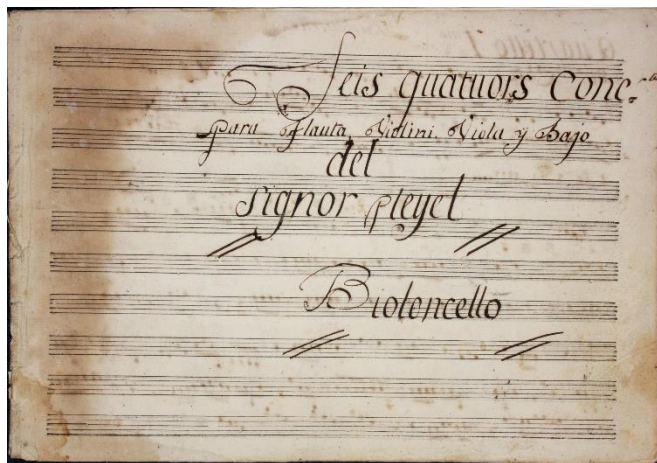 Seis quatuors Conc.ta
para Flauta, Violini. Viola y Bajo
del
signor pleyel
Bioloncello